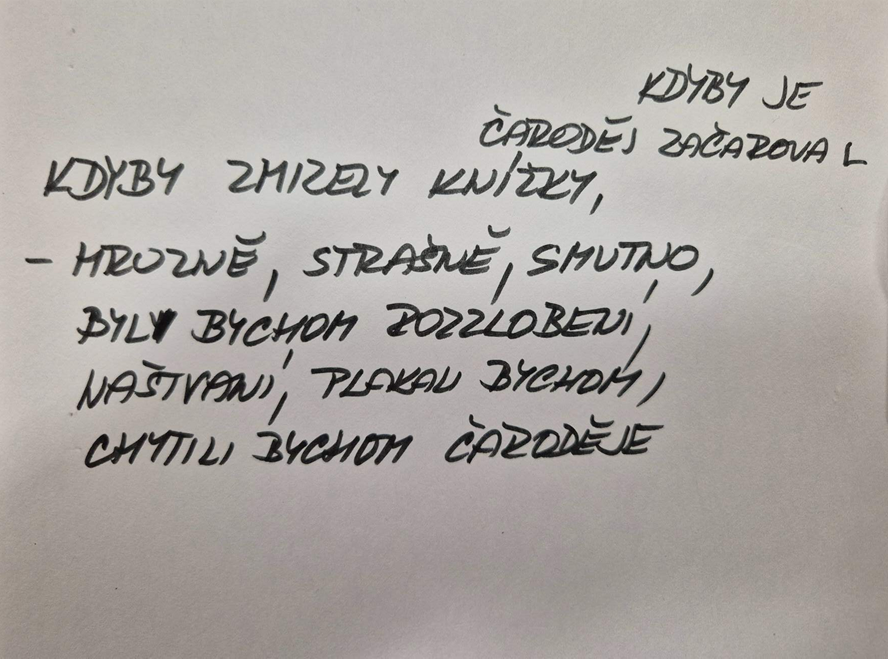 KDYBY JE
ČARODĚJ ZAČAROVAL
KDYBY ZMIZELY KNÍŽKY,
- HROZNĚ, STRAŠNĚ, SMUTNO,
BYLY BYCHOM ROZZLOBENÍ,
NAŠTVANÍ, PLAKALI BYCHOM,
CHYTILI BYCHOM ČARODĚJE